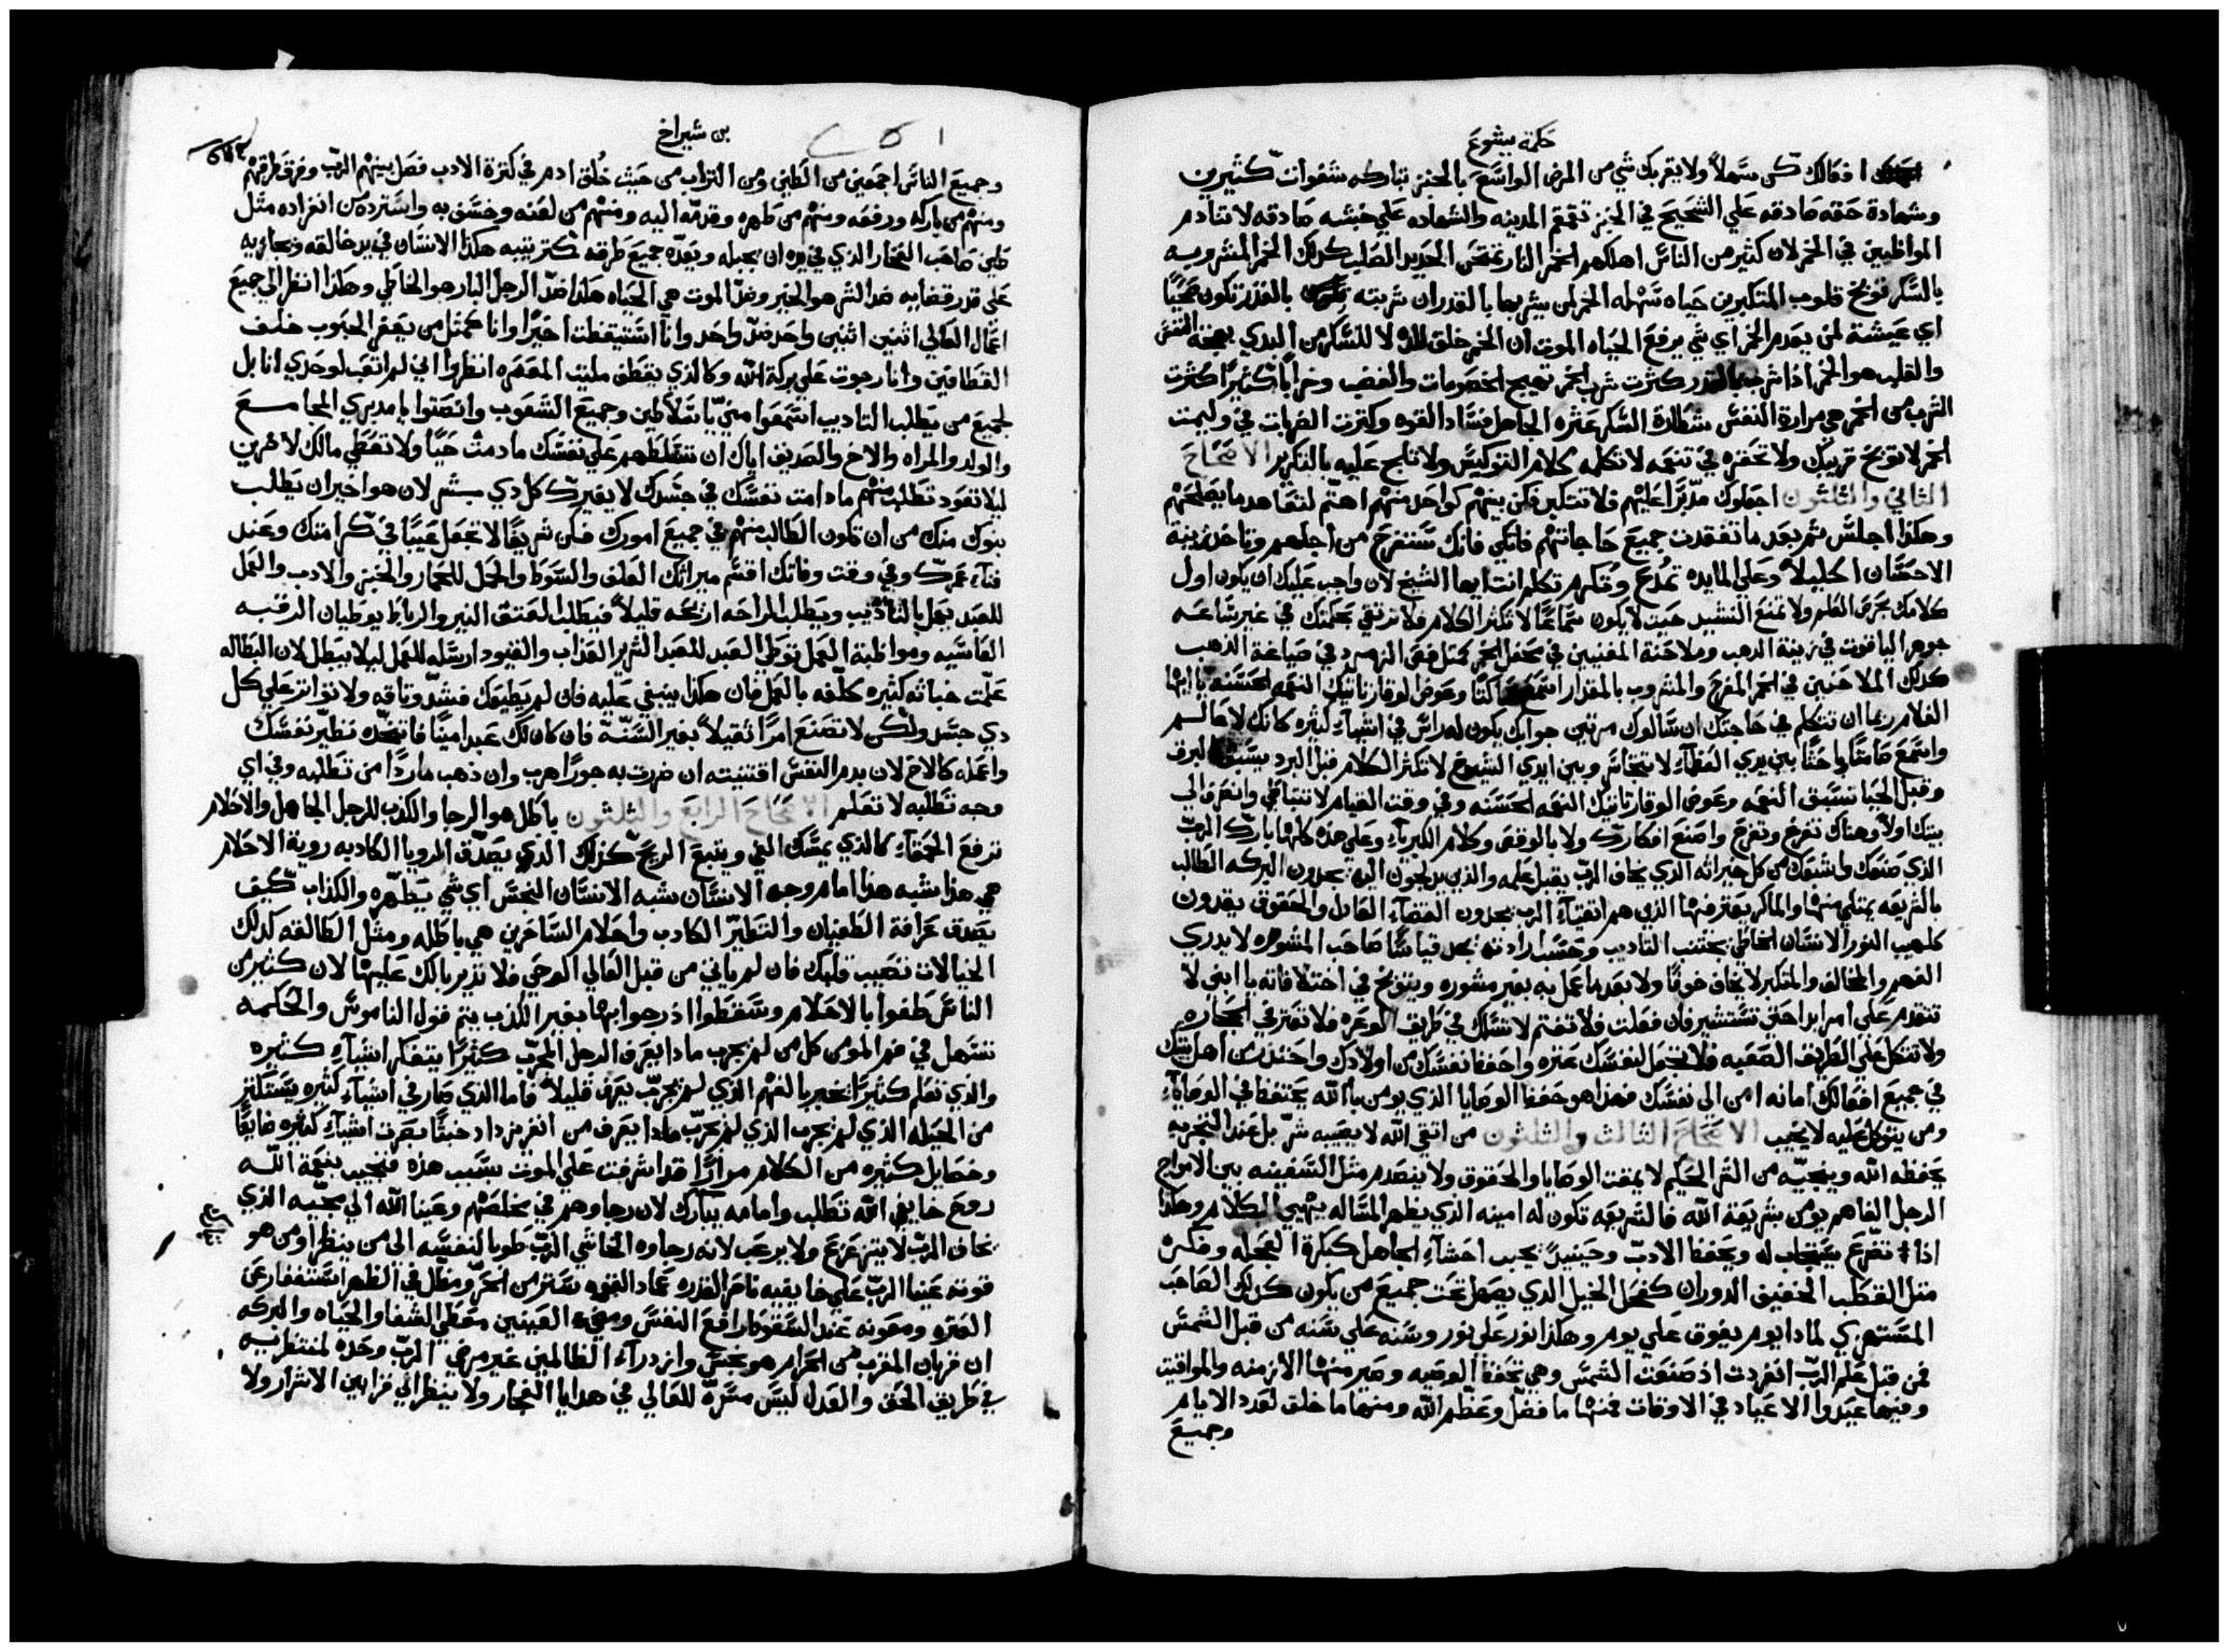 حكمة يشوع
افعالك كن سهلاً ولا يقربك شي من المرض الواسع بالخبز تباركه شفوات كثيرين
وشهادة حقه صادقه علي الشحيح في الخبز تقمقم المدينه والشهاده علي خبثه صادقه لا تنادم
المواظبين في الخمر لان كثير من الناس اهلكهم الخمر النار تمتحن الحديد الصلب كدلك الخمر المشروبه
بالسكر توبخ قلوب المتكبرين حياه سهله الخمر لمن يشربها بالقدر ان شربته بالقدر تكون صحيًا
اي عيشة لمن يعدم الخمر اي شي يرفع الحياه الموت ان الخمر خلق للذه لا للسكر من البدي بهجة النفس
والقلب هو الخمر اذا شرب بالقدر كثرت شرب الخمر تهيج الخصومات والغضب وخرابًا كثيرًا كثرت
الشرب من الخمر هي مرارة النفس شطارة السكر عثره الجاهل فساد القوه وكثرت الضربات في وليمت
الخمر لا توبخ قريبك ولا تحقره في تنعمه لا تكلمه كلام التوكيس ولا تلج عليه بالتكرير الاصحاح
الثاني والثلثون اجعلوك مدبرًا عليهم فلا تتكبر فكن بينهم كواحد منهم اهتم لتعاهد ما يصلحهم
وهكذا اجلس ثم بعد ما تفقدت جميع حاجاتهم فاتكي فانك ستفرح من اجلهم وتاخذ زينة
الاحسان اكليلاً وعلي المايده تمدح وتكرم تكلم انت ايها الشيخ لان واجب عليك ان يكون اول
كلامك بحرص العلم ولا تمنع النشيد حيث لا يكون سماعًا لا تكثر الكلام فلا ترتقي بحكمتك في غير ساعه
جوهر الياقوت في زينة الدهب وملاحنة المغنيين في محفل الخمر كمثل فص الزمرد في صياغة الذهب
كدلك الملاحنين في الخمر المفرح والمشروب بالمقدار استمع ساكتًا وعوض الوقار تاتيك النعمه الحسنه يا ايها
الغلام ربما ان تتكلم في حاجتك ان سالوك مرتين جوابك يكون له راس في اشياء كثيره كانك لا عالم
واستمع صامتًا باحثًا بين يدي العظماء لا تتجاسر وبين ايدي الشيوخ لا تكثر الكلام قبل البرد يسبق البرق
وقبل الحيا تسبق النعمه وعوض الوقار تاتيك النعمه الحسنه وفي وقت القيام لا تتباطي وانصرف الي
بيتك اولاً وهناك تفرج وتفرح واصنع افكارك ولا بالوقص وكلام الكبرياء وعلي هذه كلها بارك الرب
الذي صنعك واشبعك من كل خيراته الذي يخاف الرب يقبل علمه والذين يدلجون اليه يجدون البركه الطالب
بالشريعه يمتلي منها والماكر يعثر فيها الذين هم اتقياء الرب يجدون القضاء العادل والحقوق يقدون
كلهيب النور الانسان الخاطي يجتنب التاديب وحسب ارادته يجد قياسًا صاحب المشوره لا يدري
الفهم والمخالف والمتكبر لا يخاف خوفًا ولا بعد ما عمل به بغير مشوره ويتوبخ في اختلافاته يا ابني لا
تتقدم علي امر ابدا حتي تستشير فان فعلت فلا تغتم لا تسلك في طريق الوعره فلا تعثر في الحجاره
ولا تتكل علي الطريق الصعبه فلا تجعل لنفسك عثره واحفظ نفسك من اولادك واحتذر من اهل بيتك
في جميع افعالك امانه امن الي نفسك فهذا هو حفظ الوصايا الذي يومن بالله يحتفظ في الوصاياء
ومن يتوكل عليه لا يخيب الاصحاح الثالث والثلثون من اتقي الله لا يصيبه شر بل عند التجربه
يحفظه الله وينجيه من الشر الحكيم لا يمقت الوصايا والحقوق ولا ينصدم مثل السفينه بين الامواج
الرجل الفاهم يومن بشريعة الله فالشريعه تكون له امينه الذي يظهر المساله يهيي الكلام وهكذا
اذا تضرع يستجاب له ويحفظ الادب وحينيذٍ يجيب احشاء الجاهل كبكرة العجله وفكره
مثل القطب الخفيف الدوران كفحل الخيل الدي يصهل تحت جميع من يكون كدلك الصاحب
المستهزي لمادا يوم يفوق علي يوم وهكذا نور علي نور وسنه علي سنه من قبل الشمس
فمن قبل علم الرب انفردت اذ صنعت الشمس وهي تحفظ الوصيه وصير منها الازمنه والمواقيت
وفيها عيدوا الاعياد في الاوقات فمنها ما فضل وعظم الله ومنها ما خلق لعدد الايام
وجميع
بن شيراخ
وجميع الناس اجمعين من الطين ومن التراب من حيث خُلق ادم في كثرة الادب فصل بينهم الرب وفرق طرقهم
ومنهم من باركه ورفعه ومنهم من طهره وقدمه اليه ومنهم من لعنه وخسف به واسترده من انفراده مثل
طين صاحب الفخار الذي في يده ان يجبله ويعده جميع طرقه كترتيبه هكذا الانسان في يد خالقه ويجازيه
علي قدر قضايه ضد الشر هو الخير وضد الموت هي الحياه هكذا ضد الرجل البار هو الخاطي وهكذا انظر الي جميع
اعمال العالي اثنين اثنين واحد ضد واحد وانا استيقظت اخيرًا وانا كمثل من يعفر الحبوب خلف
القطافين وانا رجوت علي بركة الله وكالذي يقطف مليت المعصره انظروا اني لم اتعب لوحدي انا بل
لجميع من يطلب التاديب استمعوا مني يا سلاطين وجميع الشعوب وانصتوا يا مدبري المجامع
والولد والمراه والاخ والصديق اياك ان تسلطهم علي نفسك ما دمت حيًا ولا تعطي مالك لاخرين
ليلا تعود تطلب منهم ما دامت نفسك في جسدك لا يغيرك كل دي بشر لان هو اخير ان يطلب
بنوك منك من ان تكون الطالب منهم في جميع امورك فكن شريفًا لا تجعل عيبًا في كرامتك وعند
فناء عمرك وفي وقت وفاتك اقسم ميراثك العلف والسوط والحمل للحمار والخبز والادب والعمل
للعبد يعمل بالتاديب ويطلب الراحه ارتحه قليلاً فيطلب العتق النير والرباط يوطيان الرقبه
القاسيه ومواظبة العمل توطي العبد للعبد الشرير العذاب والقيود ارسله للعمل ليلا يبطل لان البطاله
علمت خباثه كثيره كلفه بالعمل فان هكذا ينبغي عليه فان لم يطيعك فشد وثاقه ولا تواتر علي كل
دي جسد ولكن لا تصنع امرًا ثقيلاً بغير السنه فان كان لك عبد امينًا فاتخده نظير نفسك
واعمله كالاخ لان بدم النفس اقتنيته ان ضربت به جورًا هرب وان ذهب ماردًا من تطلبه وفي اي
وجه تطلبه لا تعلم الاصحاح الرابع والثلثون باطل هو الرجا والكدب للرجل الجاهل والاحلام
ترفع الحمقاء كالذي يمسك الفي ويتبع الريح كذلك الذي يصدق الرويا الكادبه روية الاحلام
هي هذا شبه هذا امام وجه الانسان شبه الانسان النجس اي شي يطهره والكذاب كيف
يصدق عرافة الطغيان والتطير الكادب واحلام الساخرين هي باطله ومثل الطالقه كدلك
الخيالات تصيب قلبك فان لم ياتي من قبل العالي الوحي فلا تدير بالك عليها لان كثير من
الناس طغوا بالاحلام وسقطوا اذ رجوا بها بغير الكذب يتم قول الناموس والحكمه
تتسهل في فم المومن كل من لم يجرب مادا يعرف الرجل المجرب كثيرًا يتفكر اشياء كثيره
والذي تعلم كثيرًا يخبر بالفهم الذي لم يجرب يعرف قليلاً فاما الذي صار في اشياء كثيره يستكثر
من الحيله الذي لم يجرب الذي لم يجرب مادا يعرف من انغر يزداد خبثًا
وخصايل كثيره من الكلام مرارًا قد اشرفت علي الموت بسبب هذه فنجيب بنعمة الله
روح خايفي الله تطلب وامامه يبارك لان رجاوهم في مخلصهم وعينا الله الي محبيه الذي
يخاف الرب لا يتهزعزع ولا يرعب لانه رجاوه الخاشي الرب طوبا لنفسه الي من ينظر او من هو
قوته عينا الرب علي خايفيه ناصر القدره عماد القوه ستر من الحر ومظل في الظهر استغفار عن
العثره ومعونه عند السقوط رافع النفس ومضيء العينين معطي الشفا والحياه والبركه
ان قربان المقرب من الحرام هو نجس وازدراء الظالمين غير مرضي الرب وحده لمنتظرينه
في طريق الحق والعدل ليس مسرة للعالي في هدايا الفجار ولا ينظر الي قرابين الاشرار ولا